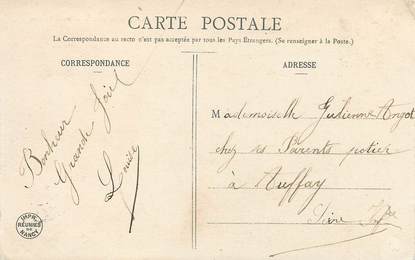 CARTE POSTALE
La Correspondance au recto n'est pas acceptée par tous les Pays Étrangers. (Se renseigner à la Poste.)
CORRESPONDANCE
Bonheur
Grande joie
Louise
IMPR.
RÉUNIES
DE
NANCY
ADRESSE
Mademoiselle Julienne Angot
chez ses Parents potier
à Auffay
Seine Infre